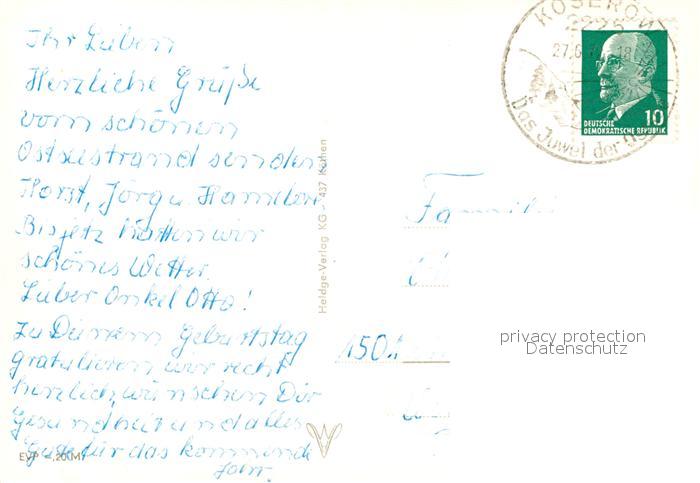 Ihr Lieben
Herzliche Grüße
vom schönen
Ostseestrand senden
Horst, Jörg u. Hannelore
Bis jetz hatten wir
schönes Wetter.
Lieber Onkel Otto!
Zu Deinem Geburtstag
gratulieren wir recht
herzlich, wünschen Dir
Gesundheit und alles
Gute für das kommende
Jahr.
EVP -,20 (M)
Heldge-Verlag KG 437 Köthen
KOSEROW
2225
27.6. 18
Das Juwel der
10
DEUTSCHE
DEMOKRATISCHE REPUBLIK
Familie
1501
privacy protection
Datenschutz